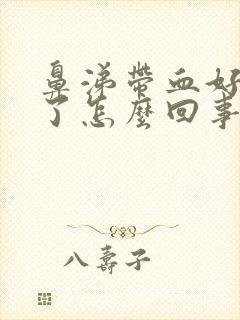 鼻涕带血好
了怎麼回事
八壽子